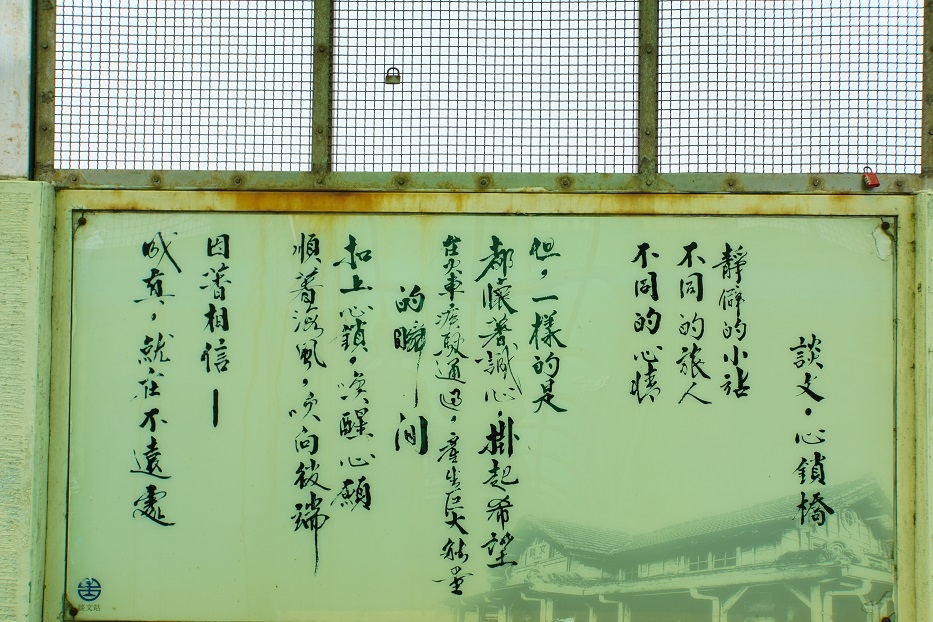 談文。心鎖橋
靜僻的小站
不同的旅人
不同的心情
但,一樣的是
都懷著誠心,掛起希望
在火車疾駛通過,產生巨大能量
的瞬間
扣上心鎖,喚醒心願
順著海風,吹向彼端
因著相信—
成真,就在不遠處
談文站